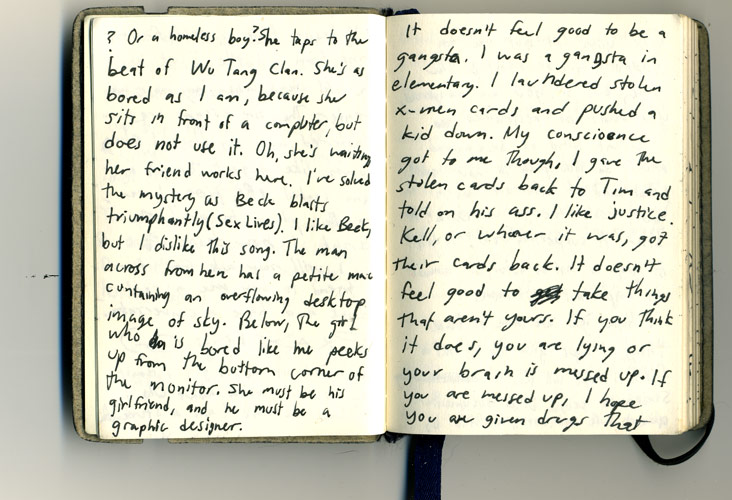 ? Or a homeless boy? She taps to the
beat of Wu Tang Clan. She's as
bored as I am, because she
sits in front of a computer, but
does not use it. Oh, she's waiting
her friend works here. I've solved
the mystery as Beck blasts
triumphantly (Sex Lives). I like Beck,
but I dislike this song. The man
across from here has a petite mac
containing an overflowing desktop
image of sky. Below, The girl
who is bored like me peeks
up from the bottom corner of
the monitor. She must be his
girlfriend, and he must be a
graphic designer.
It doesn't feel good to be a
gangsta. I was a gangsta in
elementary. I laundered stolen
x-men cards and pushed a
kid down. My conscioence
got to me Though, I gave The
stolen cards back to Tim and
told on his ass. I like justice.
Kell, or whoever it was, got
their cards back. It doesn't
feel good to take things
that aren't yours. If you Think
it does, you are lying or
your brain is messed up. If
you are messed up, I hope
you are given drugs That